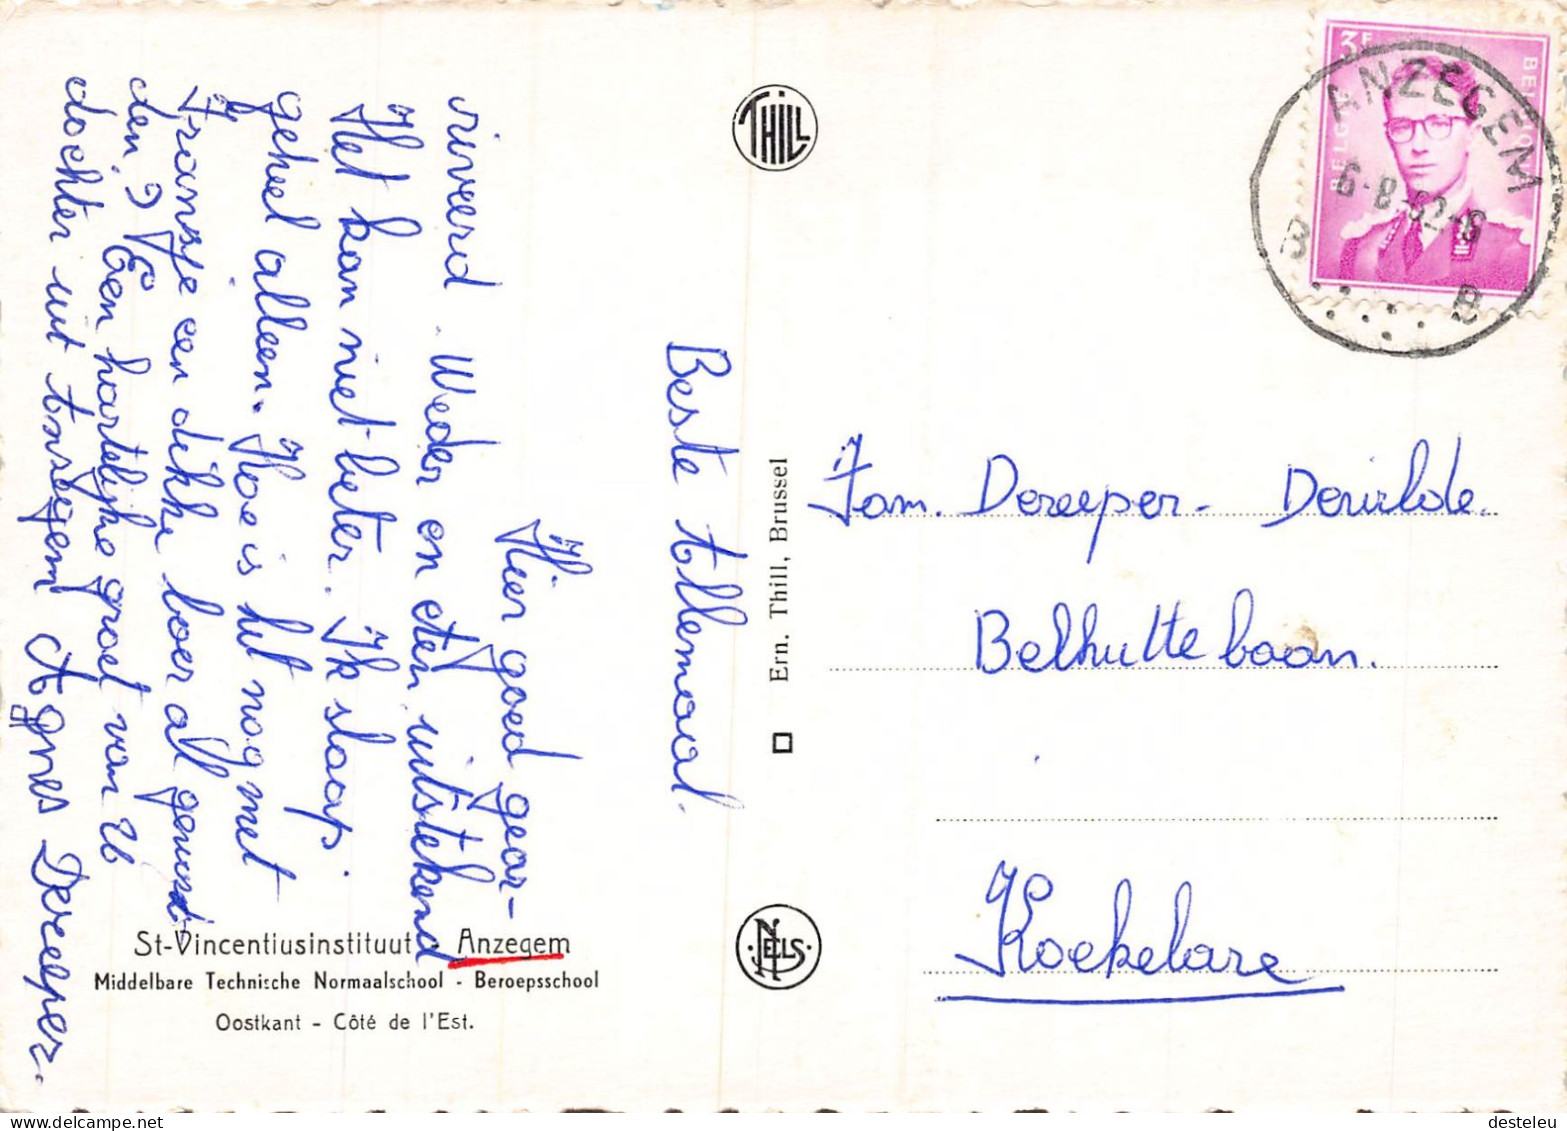 Beste Allemaal.
Hier goed gear-
riveerd. Weder en eten uitstekend
Het kan niet beter. Ik slaap
geheel alleen. Hoe is het nog met
Fransje een dikke boer al gewor
den? Een hartelijke groet van U
dochter uit Anzegem Agnes Dereeper.
St-Vincentiusinstituut - Anzegem
Middelbare Technische Normaalschool - Beroepsschool
Oostkant - Côté de l'Est.
THILL
Ern. Thill, Brussel
NELS
3F
BELGIE
BELGIQUE
ANZEGEM
6-8-62-
B B
Fam. Dereeper-
Belhuttebaan.
Koekelare
desteleu